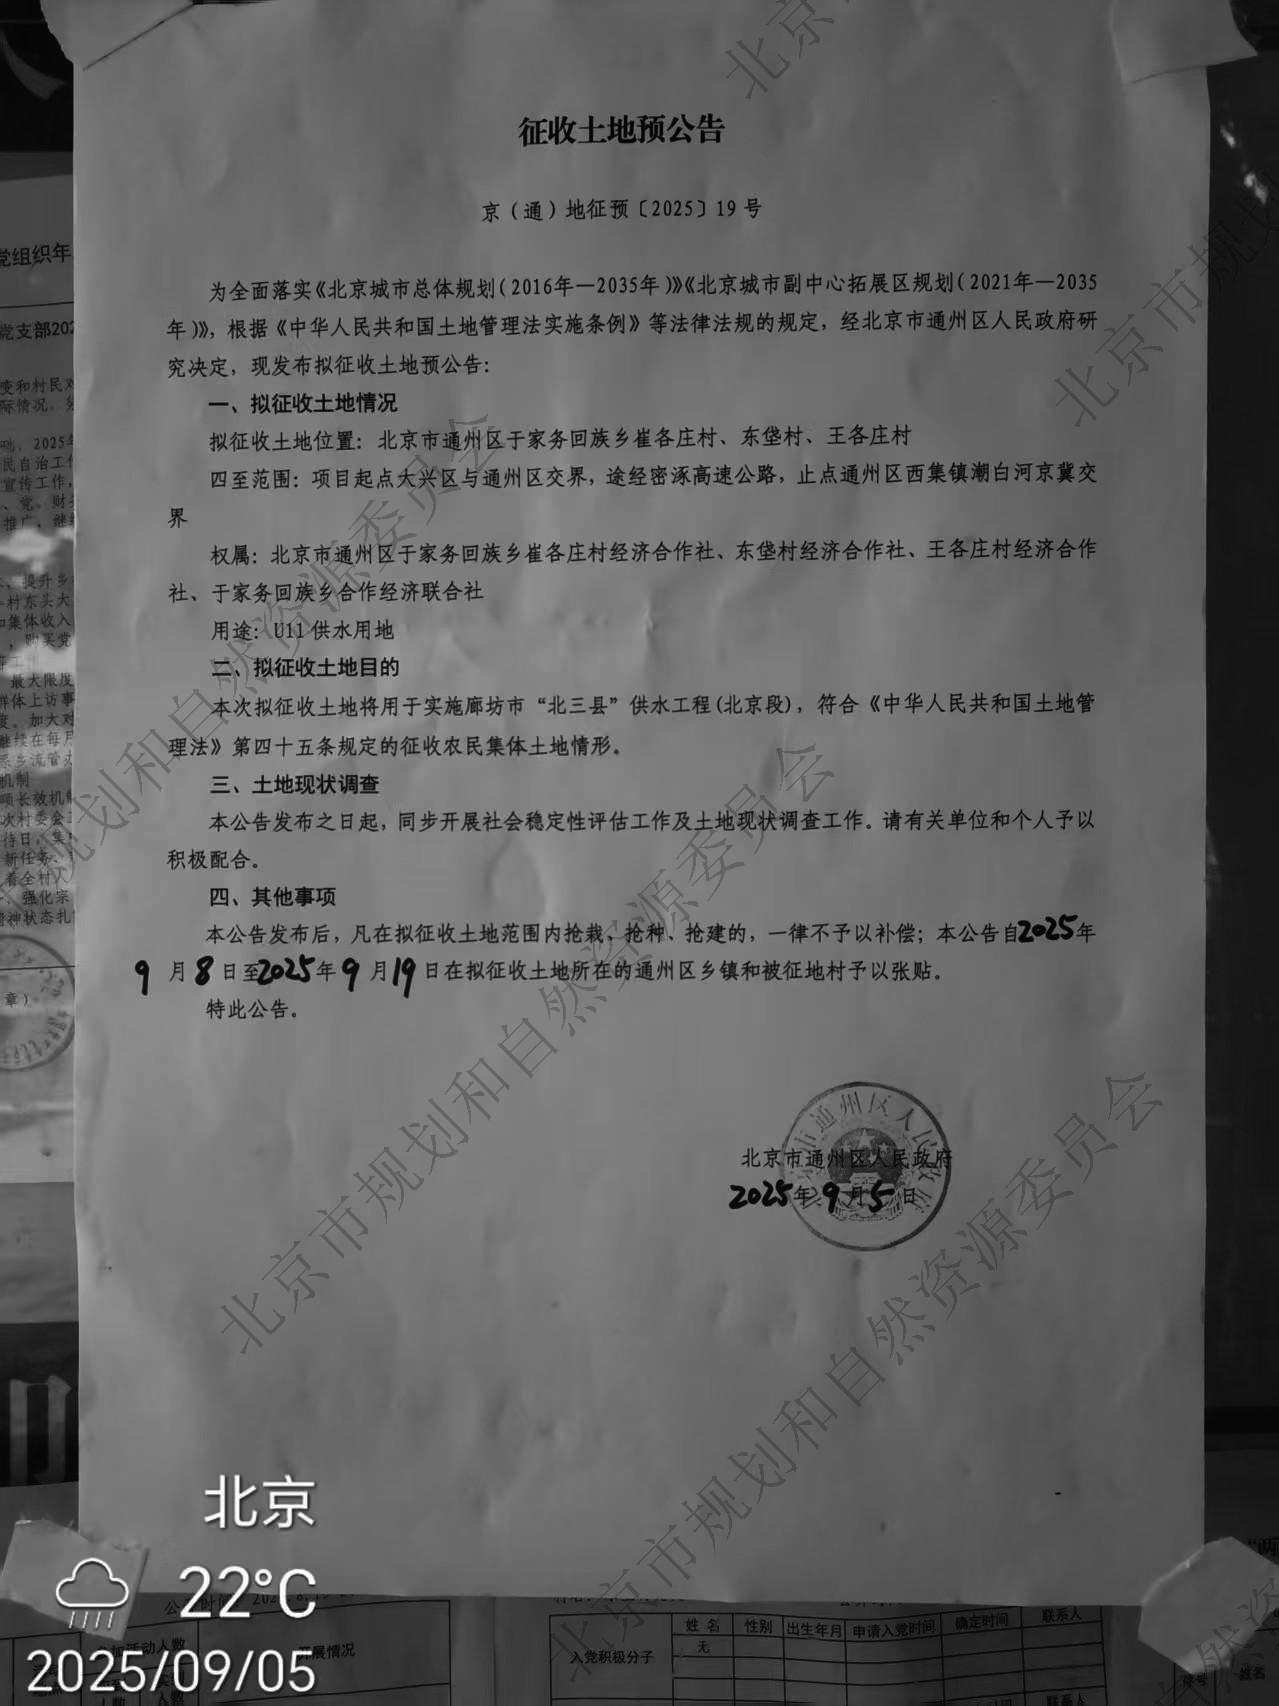 征收土地预公告
京（通）地征预〔2025〕19号
为全面落实《北京城市总体规划（2016年—2035年）》《北京城市副中心拓展区规划（2021年—2035
年）》，根据《中华人民共和国土地管理法实施条例》等法律法规的规定，经北京市通州区人民政府研
究决定，现发布拟征收土地预公告：
一、拟征收土地情况
拟征收土地位置：北京市通州区于家务回族乡崔各庄村、东垡村、王各庄村
四至范围：项目起点大兴区与通州区交界，途经密涿高速公路，止点通州区西集镇潮白河京冀交
界
权属：北京市通州区于家务回族乡崔各庄村经济合作社、东垡村经济合作社、王各庄村经济合作
社、于家务回族乡合作经济联合社
用途：U11供水用地
二、拟征收土地目的
本次拟征收土地将用于实施廊坊市“北三县”供水工程(北京段)，符合《中华人民共和国土地管
理法》第四十五条规定的征收农民集体土地情形。
三、土地现状调查
本公告发布之日起，同步开展社会稳定性评估工作及土地现状调查工作。请有关单位和个人予以
积极配合。
四、其他事项
本公告发布后，凡在拟征收土地范围内抢栽、抢种、抢建的，一律不予以补偿；本公告自2025年
9月8日至2025年9月19日在拟征收土地所在的通州区乡镇和被征地村予以张贴。
特此公告。
北京市通州区人民政府
2025年9月5日
北京市规划和自然资源委员会
北京
22°C
2025/09/05
党组织年
党支部202
变和村民对
际情况，
民自治工作
宣传工作，
、党。财
推广，继
、提升乡
村东头大
和集体收入
，购买党
最大限度
群体上访事
度。加大对
继续在每月
机制
项长效机制
次村委会
待日，集
新任务、
着全村人
、强化宗
精神状态扎
章）
参加活动人数
开展情况
人数
姓名
性别
出生年月
申请入党时间
确定时间
联系人
入党积极分子
无
联系人
序号
姓名